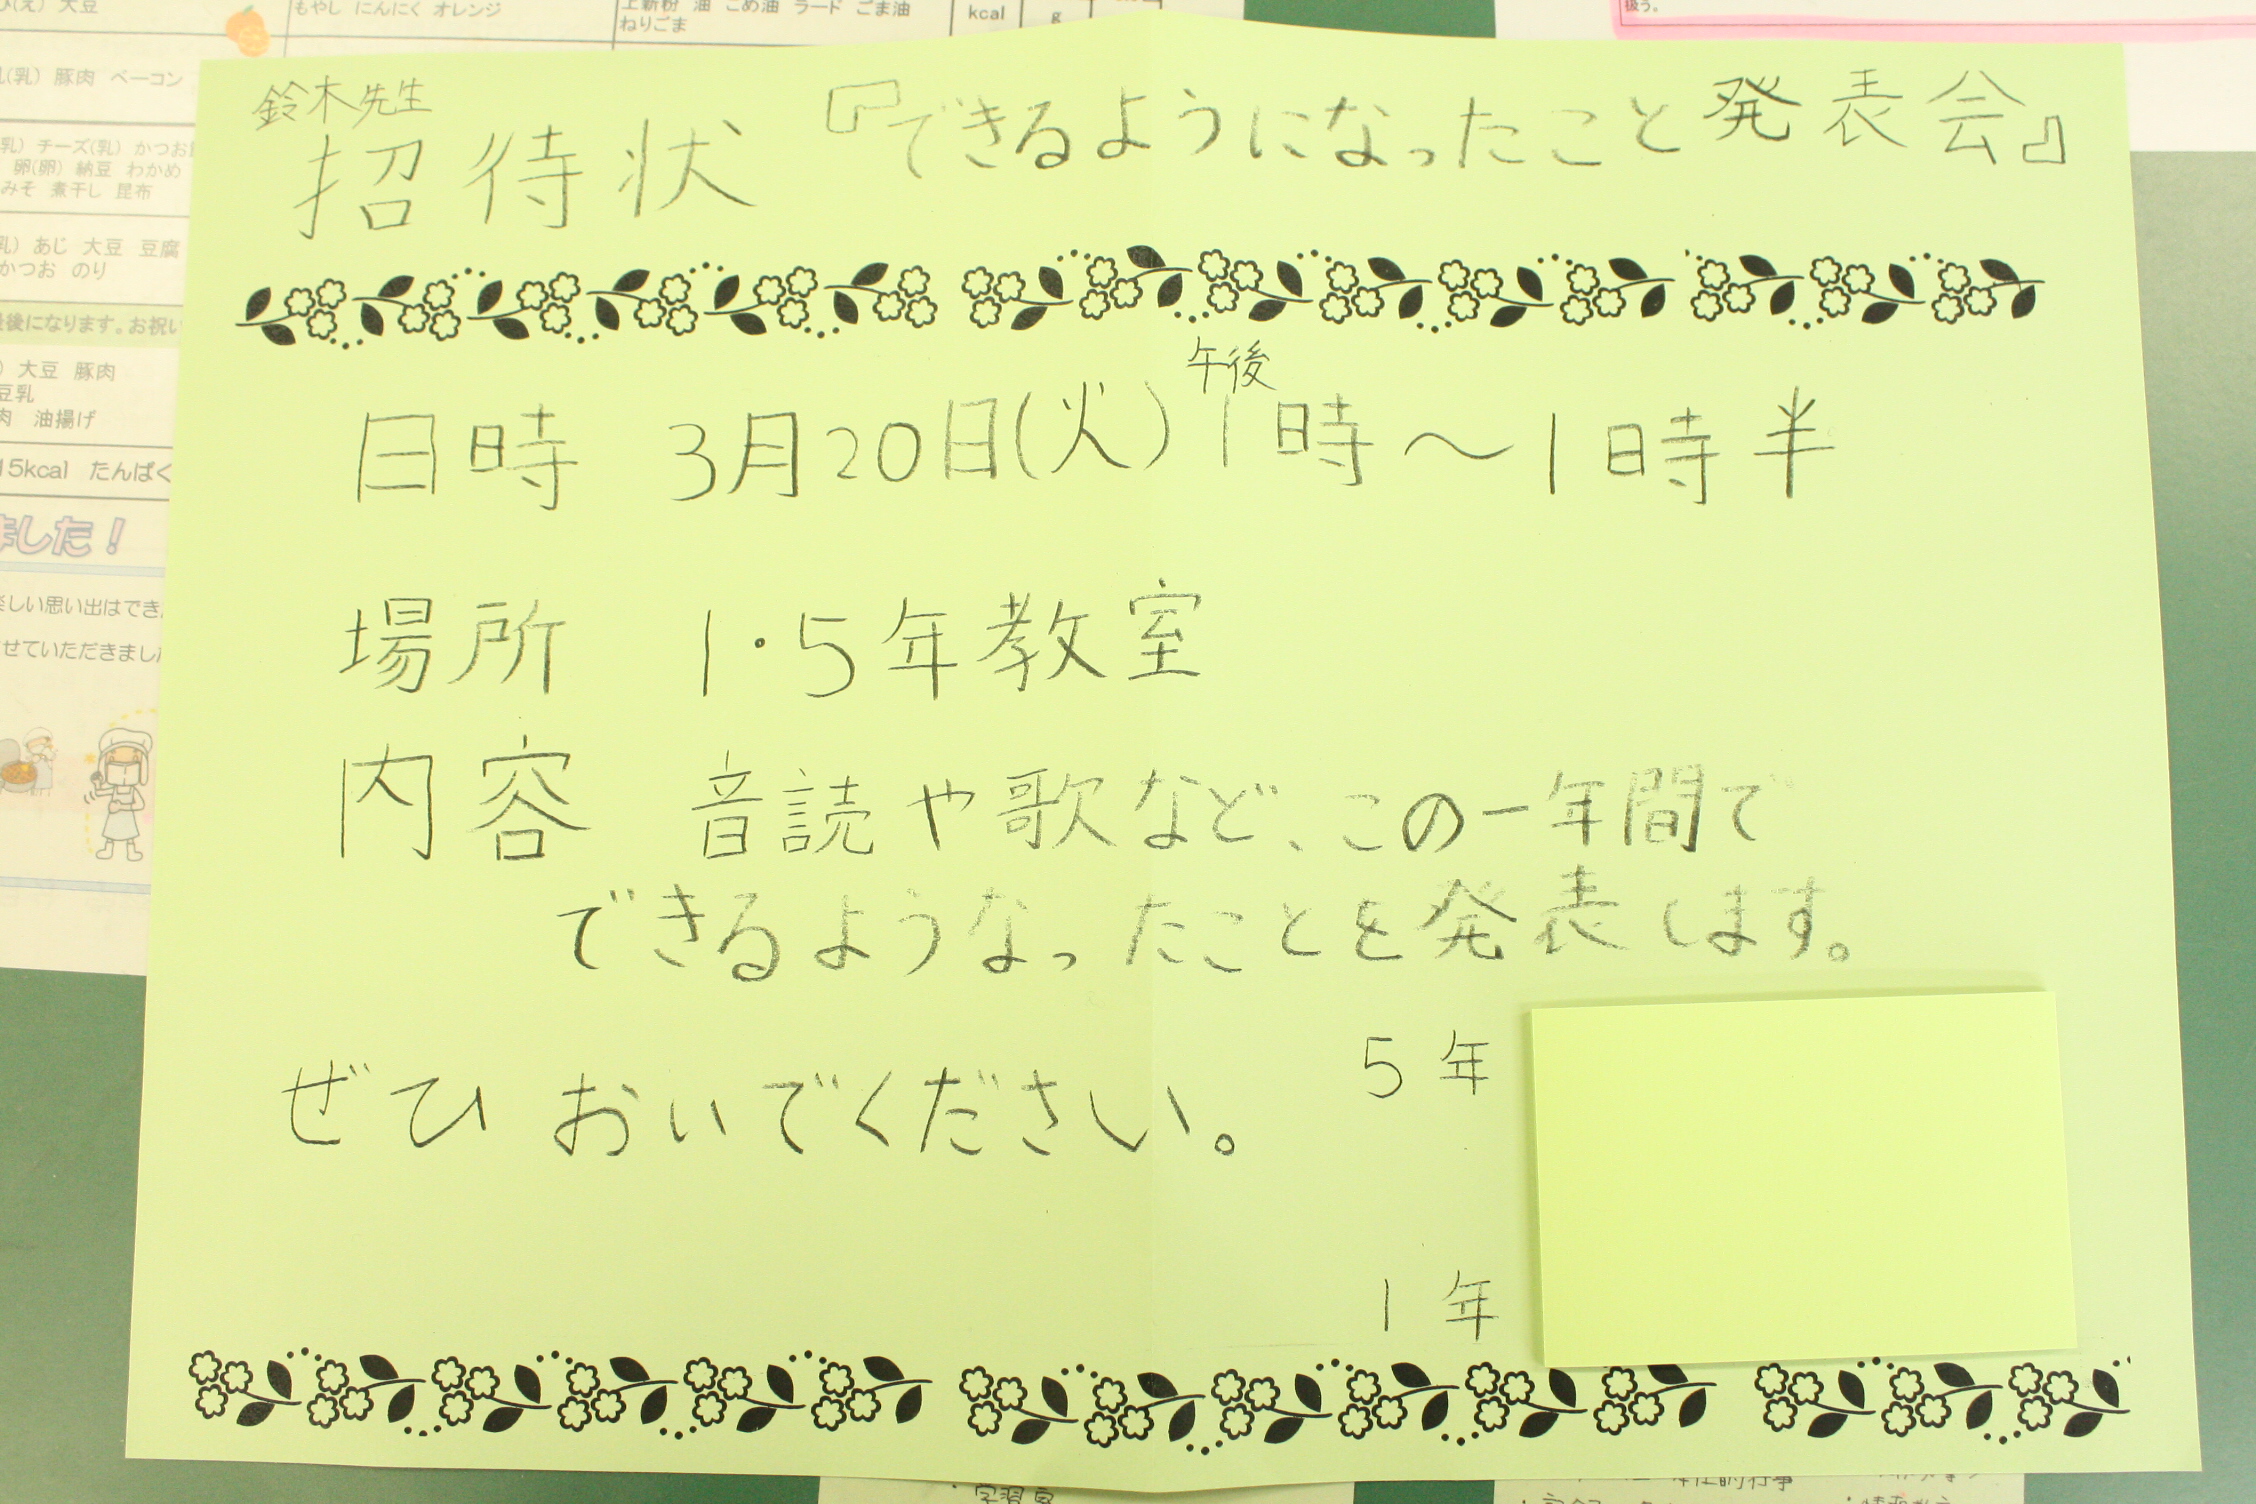 鈴木先生
招待状 『できるようになったこと発表会』
午後
日時 3月20日(火)1時～1時半
場所 1・5年教室
内容 音読や歌など、この一年間で
できるようなったことを発表します。
5年
ぜひ おいでください。
1年
大豆
もやし にんにく オレンジ
上新粉 油 ごめ油 ラード ごま油
ねりごま
kcal
g
扱う。
(乳) 豚肉 ベーコン
乳) チーズ(乳) かつお
卵(卵) 納豆 わかめ
みそ 煮干し 昆布
乳) あじ 大豆 豆腐
かつお のり
最後になります。お祝い
) 大豆 豚肉
豆乳
肉 油揚げ
15kcal たんぱく
ました!
楽しい思い出はでき
せていただきました
学習